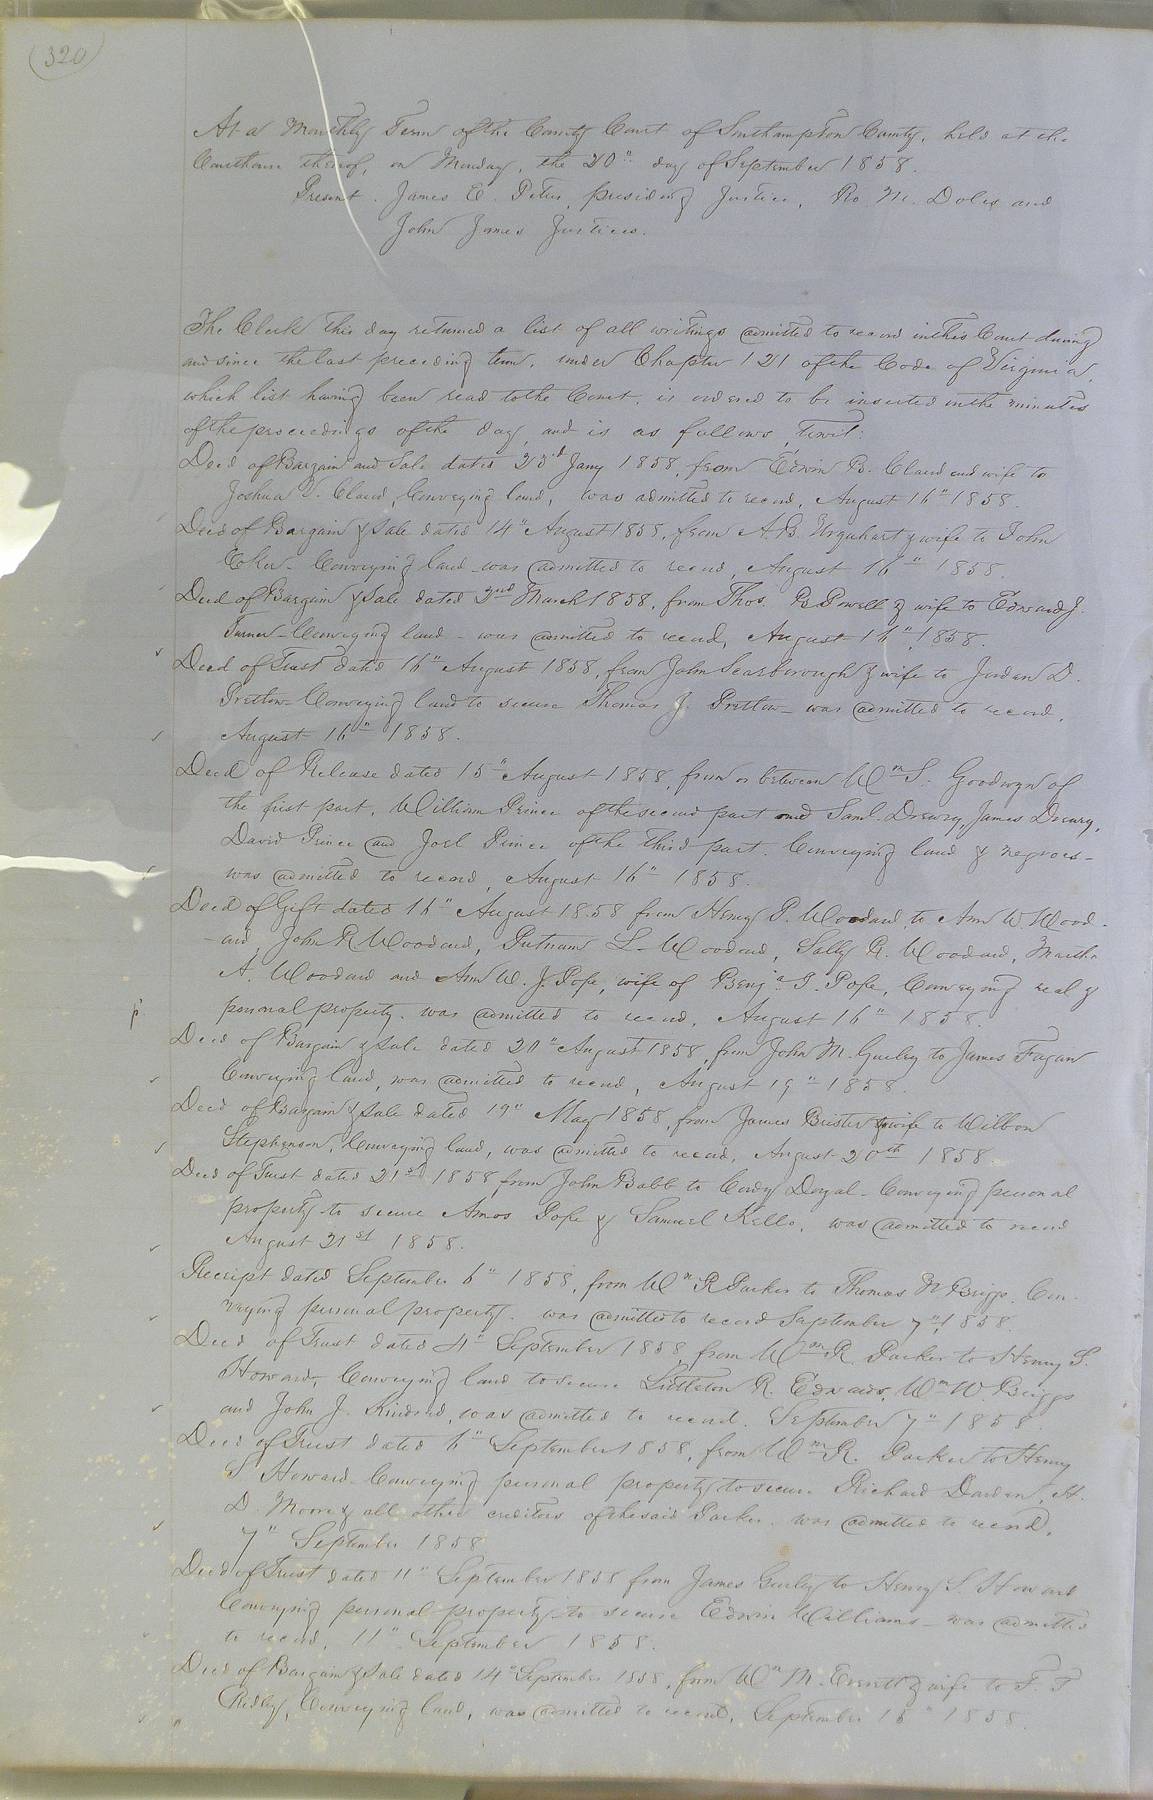 (320)
At a Monthly Term of the County Court of Southampton County, held at the
Courthouse thereof, on Monday, the 20th day of September 1858.
Present. James E. Peters, presiding Justice, Ro. M. Doles and
John James Justices.
The Clerk this day returned a list of all writings admitted to record in this Court during
and since the last preceding term, under Chapter 121 of the Code of Virginia,
which list having been read to the Court, is ordered to be inserted in the minutes
of the proceedings of the day, and is as follows, towit:
Deed of Bargain and Sale dated 23d Jany 1858, from Edwin B. Claud and wife to
Joshua Claud, Conveying land, was admitted to record, August 16" 1858.
Deed of Bargain & Sale dated 14" August 1858, from A. B. Urquhart & wife to John
Eker - Conveying land - was admitted to record, August 16" 1858.
Deed of Bargain & Sale dated 3nd March 1858, from Thos. B. Powell & wife to Edward J.
Turner - Conveying land - was admitted to record, August 16" 1858.
Deed of Trust dated 16" August 1858, from John Scarborough & wife to Jordan D.
Pretlow - Conveying land to secure Thomas J. Pretlow - was admitted to record,
August 16" 1858.
Deed of Release dated 15" August 1858, from or between Wm S. Goodwyn of
the first part, William Prince of the second part and Saml. Drewry, James Drewry,
David Prince and Joel Prince of the third part. Conveying land & negroes -
was admitted to record, August 16" 1858.
Deed of Gift dated 16" August 1858 from Henry P. Woodard, to Ann W. Wood-
-ard, John R. Woodard, Putnam L. Woodard, Sally R. Woodard, Martha
A. Woodard and Ann W. J. Pope, wife of Benja. J. Pope, Conveying real &
personal property. was admitted to record, August 16" 1858.
Deed of Bargain & Sale dated 20" August 1858, from John M. Gurley to James Fagan
Conveying land, was admitted to record, August 19" 1858.
Deed of Bargain & Sale dated 19" May 1858, from James Brister & wife to Wilbon
Stephenson, Conveying land, was admitted to record, August 20th 1858.
Deed of Trust dated 21st 1858 from John Babb to Cordy Doyal - Conveying personal
property to secure Amos Pope & Samuel Kello, was admitted to record
August 21st 1858.
Receipt dated September 6" 1858, from Wm R Parker to Thomas N Briggs. Con-
veying personal property. was admitted to record September 7" 1858.
Deed of Trust dated 4" September 1858, from Wm R. Parker to Henry S.
Howard, Conveying land to secure Littleton R. Edwards, Wm W. Briggs
and John J. Kindred, was admitted to record. September 7" 1858.
Deed of Trust dated 6" September 1858, from Wm R. Parker to Henry
S Howard - Conveying personal property to secure Richard Darden, H.
D. Moore & all other creditors of the said Parker. was admitted to record,
7" September 1858
Deed of Trust dated 11" September 1858 from James Gurley to Henry S. Howard
Conveying personal property to secure Edwin Williams - was admitted
to record, 11" September 1858.
Deed of Bargain & Sale dated 14" September 1858, from Wm M. Everett & wife to F. T
Ridley, Conveying land, was admitted to record, September 15" 1858.